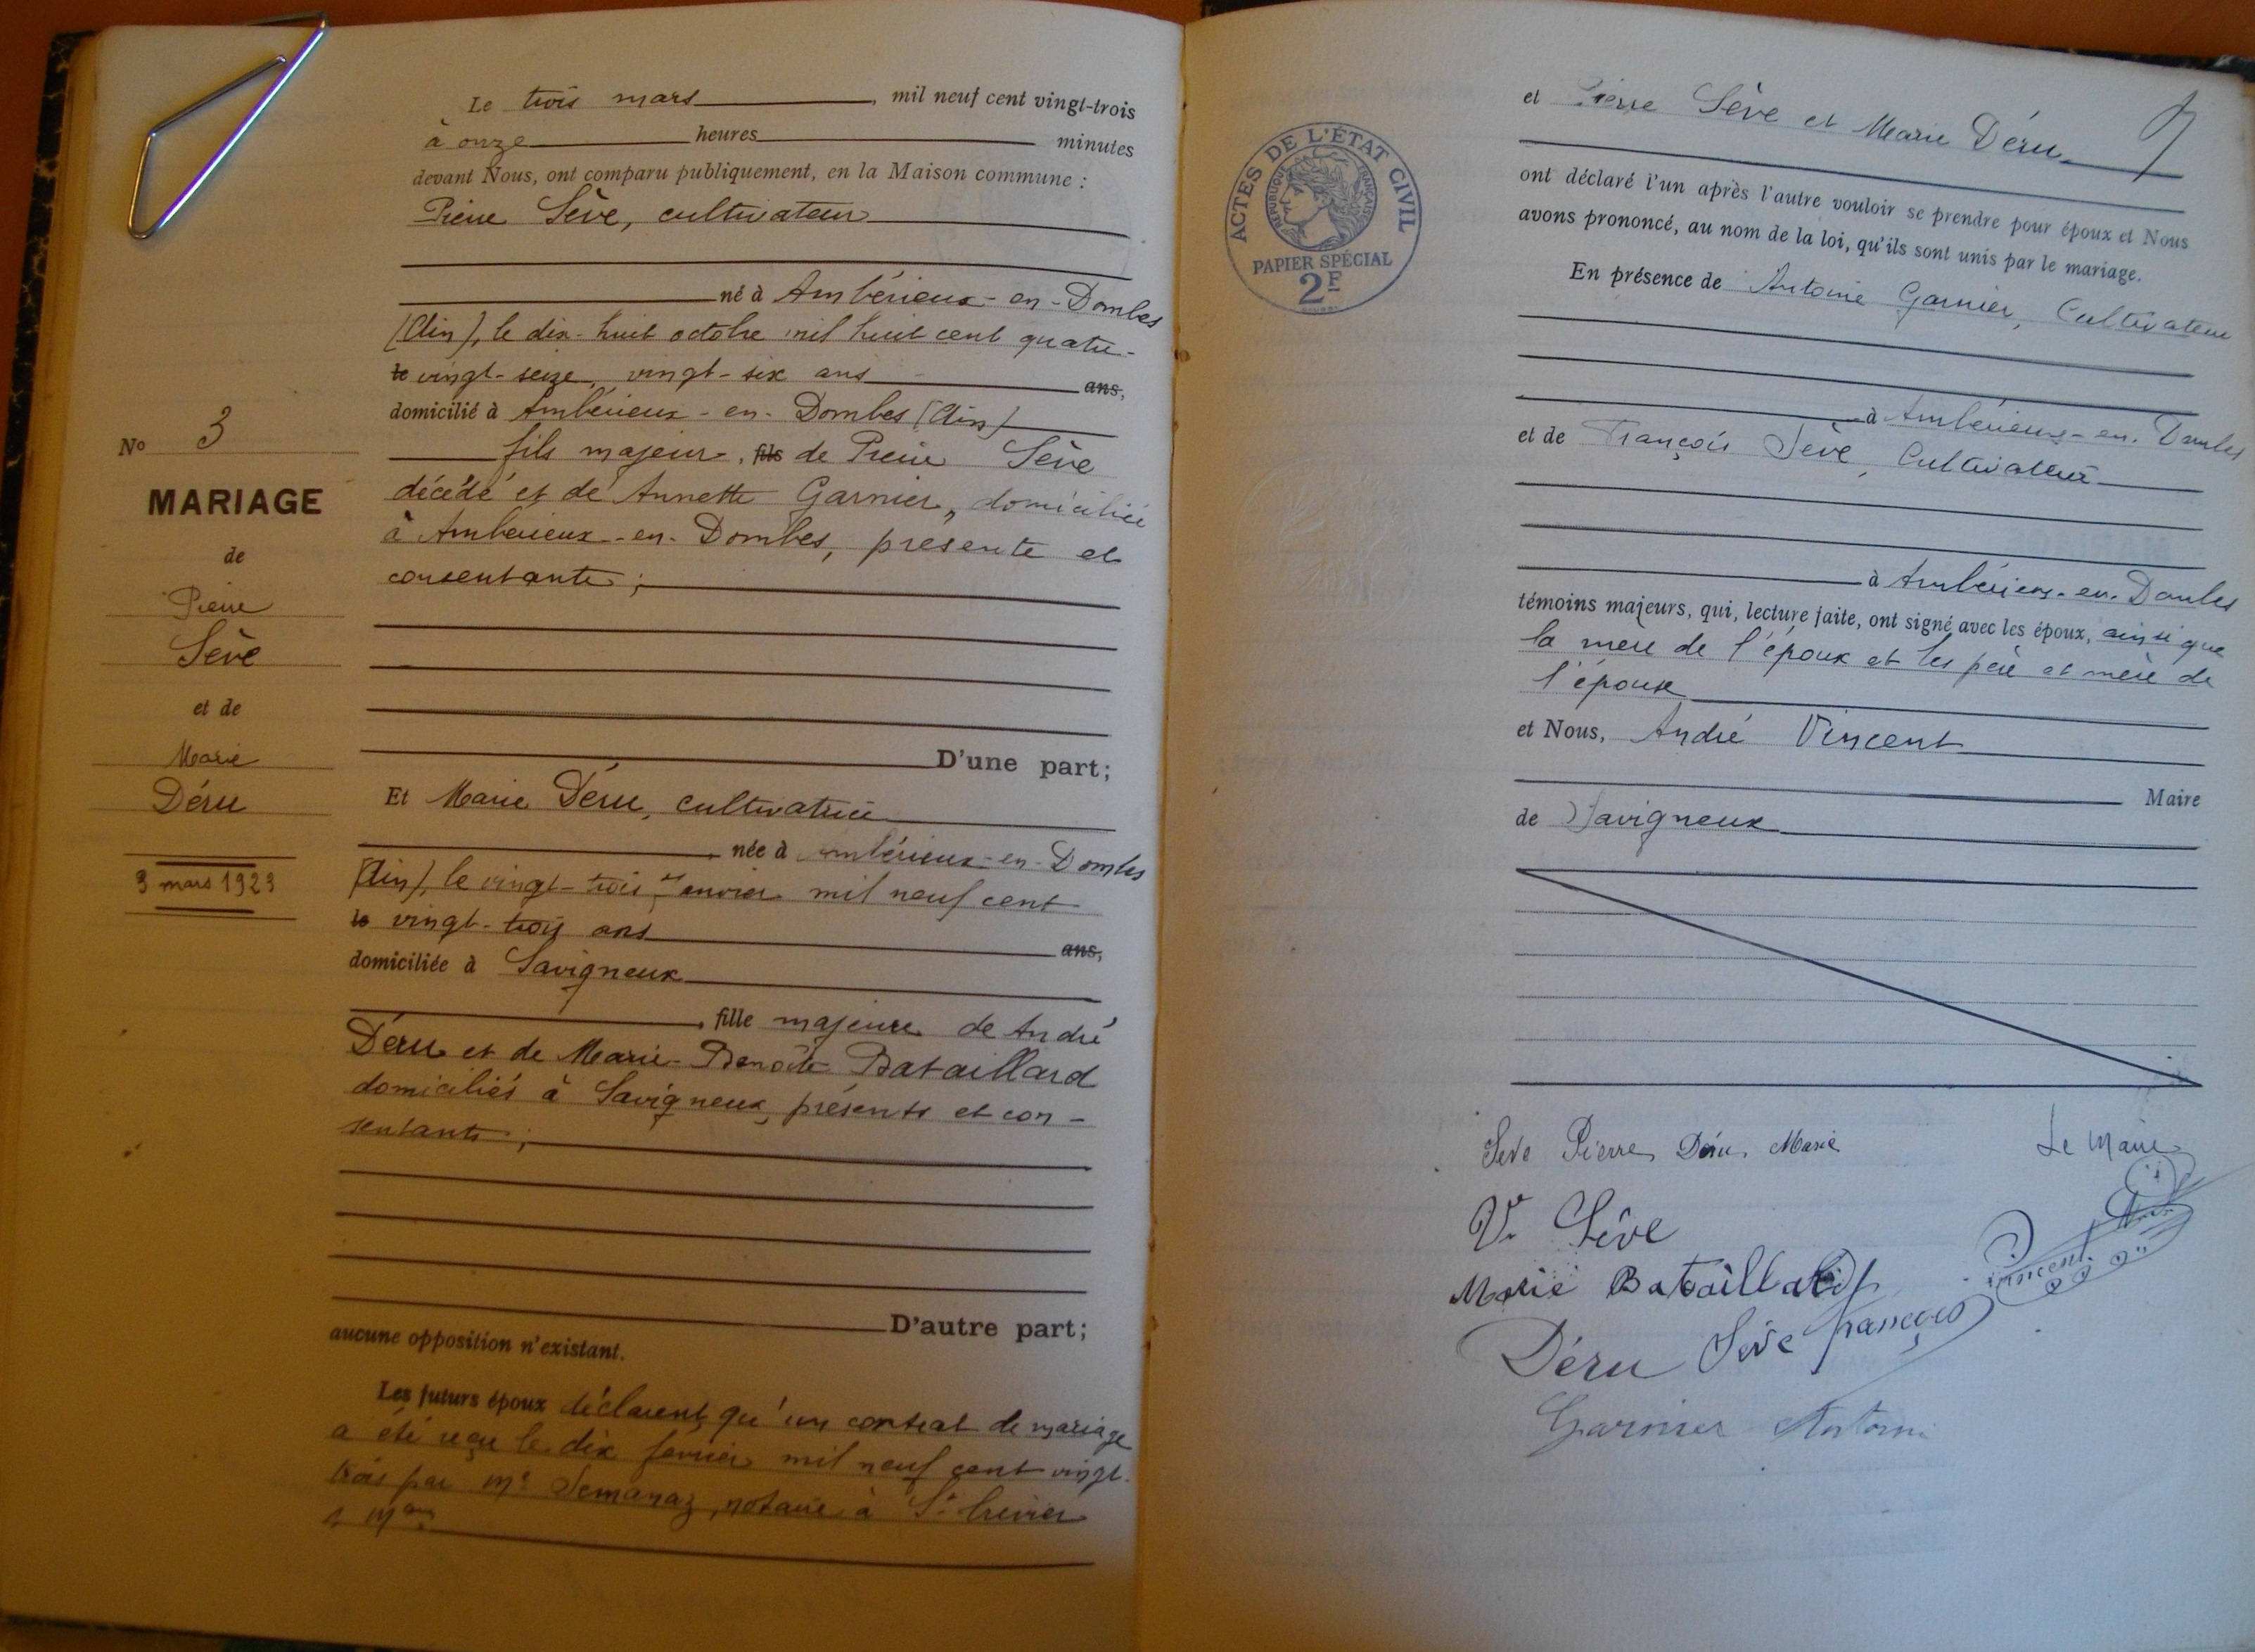 Le trois mars, mil neuf cent vingt-trois
à onze heures minutes
devant Nous, ont comparu publiquement, en la Maison commune :
Pierre Sève, cultivateur
né à Ambérieux-en-Dombes
(Ain), le dix-huit octobre mil huit cent quatre-
le vingt-seize, vingt-six ans ans,
domicilié à Ambérieux-en-Dombes (Ain)
fils majeur, fils de Pierre Sève
décédé et de Annette Garnier, domiciliée
à Ambérieux-en-Dombes, présente et
consentante ;
D'une part;
Et Marie Déru, cultivatrice
, née à Ambérieux-en-Dombes
(Ain), le vingt-trois janvier mil neuf cent
le vingt-trois ans ans,
domiciliée à Savigneux
, fille majeure de André
Déru et de Marie-Benoîte Bataillard
domiciliés à Savigneux, présents et con-
sentants ;
D'autre part;
aucune opposition n'existant.
Les futurs époux déclarent qu'un contrat de mariage
a été reçu le dix février mil neuf cent vingt-
trois par Me Semanaz, notaire à St Trivier
s/ Mans
No 3
MARIAGE
de
Pierre
Sève
et de
Marie
Déru
3 mars 1923
ACTES DE L'ÉTAT CIVIL
RÉPUBLIQUE FRANÇAISE
PAPIER SPÉCIAL
2F
et Pierre Sève et Marie Déru
ont déclaré l'un après l'autre vouloir se prendre pour époux et Nous
avons prononcé, au nom de la loi, qu'ils sont unis par le mariage.
En présence de Antoine Garnier, Cultivateur
à Ambérieux-en-Dombes
et de François Sève, Cultivateur
à Ambérieux-en-Dombes
témoins majeurs, qui, lecture faite, ont signé avec les époux, ainsi que
la mère de l'époux et les père et mère de
l'épouse
et Nous, André Vincent
Maire
de Savigneux
Sève Pierre Déru Marie
Le Maire
Ve Sève
Marie Bataillard
Vincent
Déru Sève françois
Garnier Antoni